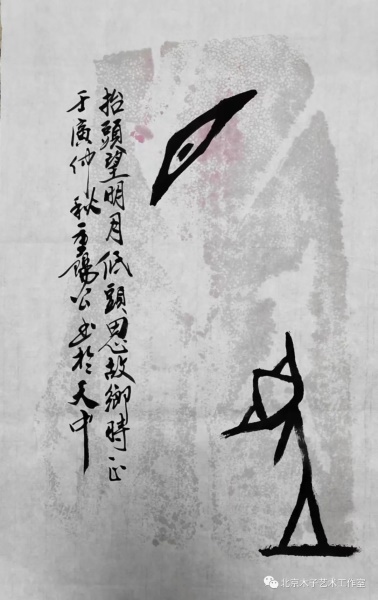 抬頭望明月低頭思故鄉時正
于寅仲秋重陽公书於天中
北京木子艺术工作室